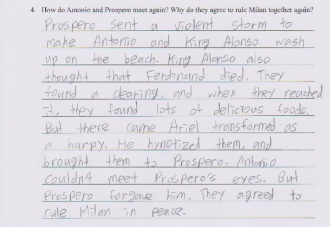 4. How do Antonio and Prospero meet again? Why do they agree to rule Milan together again?
Prospero sent a violent storm to
make Antonio and King Alonso wash
up on the beach. King Alonso also
thought that Ferdinand died. They
found a clearing, and when they reached
it, they found lots of delicious foods.
But there came Ariel transformed as
a harpy. He hynotized them, and
brought them to Prospero. Antonio
couldn't meet Prospero's eyes. But
Prospero forgave him. They agreed to
rule Milan in peace.